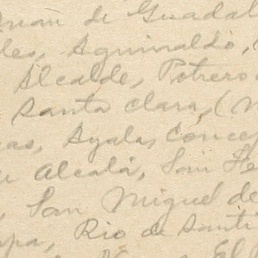 Juan de Guadal
les, Aguinaldo,
Alcalde, Potrero
Santa Clara, (
as, Ayala, Conce
Alcalá, San Fe
San Miguel de
pa, Rio de Santi
El